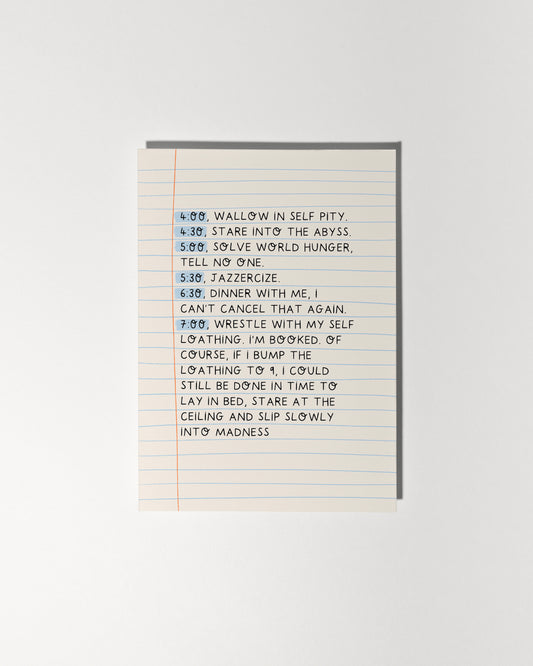 4:00, WALLOW IN SELF PITY.
4:30, STARE INTO THE ABYSS.
5:00, SOLVE WORLD HUNGER,
TELL NO ONE.
5:30, JAZZERCIZE.
6:30, DINNER WITH ME, I
CAN'T CANCEL THAT AGAIN.
7:00, WRESTLE WITH MY SELF
LOATHING. I'M BOOKED. OF
COURSE, IF I BUMP THE
LOATHING TO 9, I COULD
STILL BE DONE IN TIME TO
LAY IN BED, STARE AT THE
CEILING AND SLIP SLOWLY
INTO MADNESS